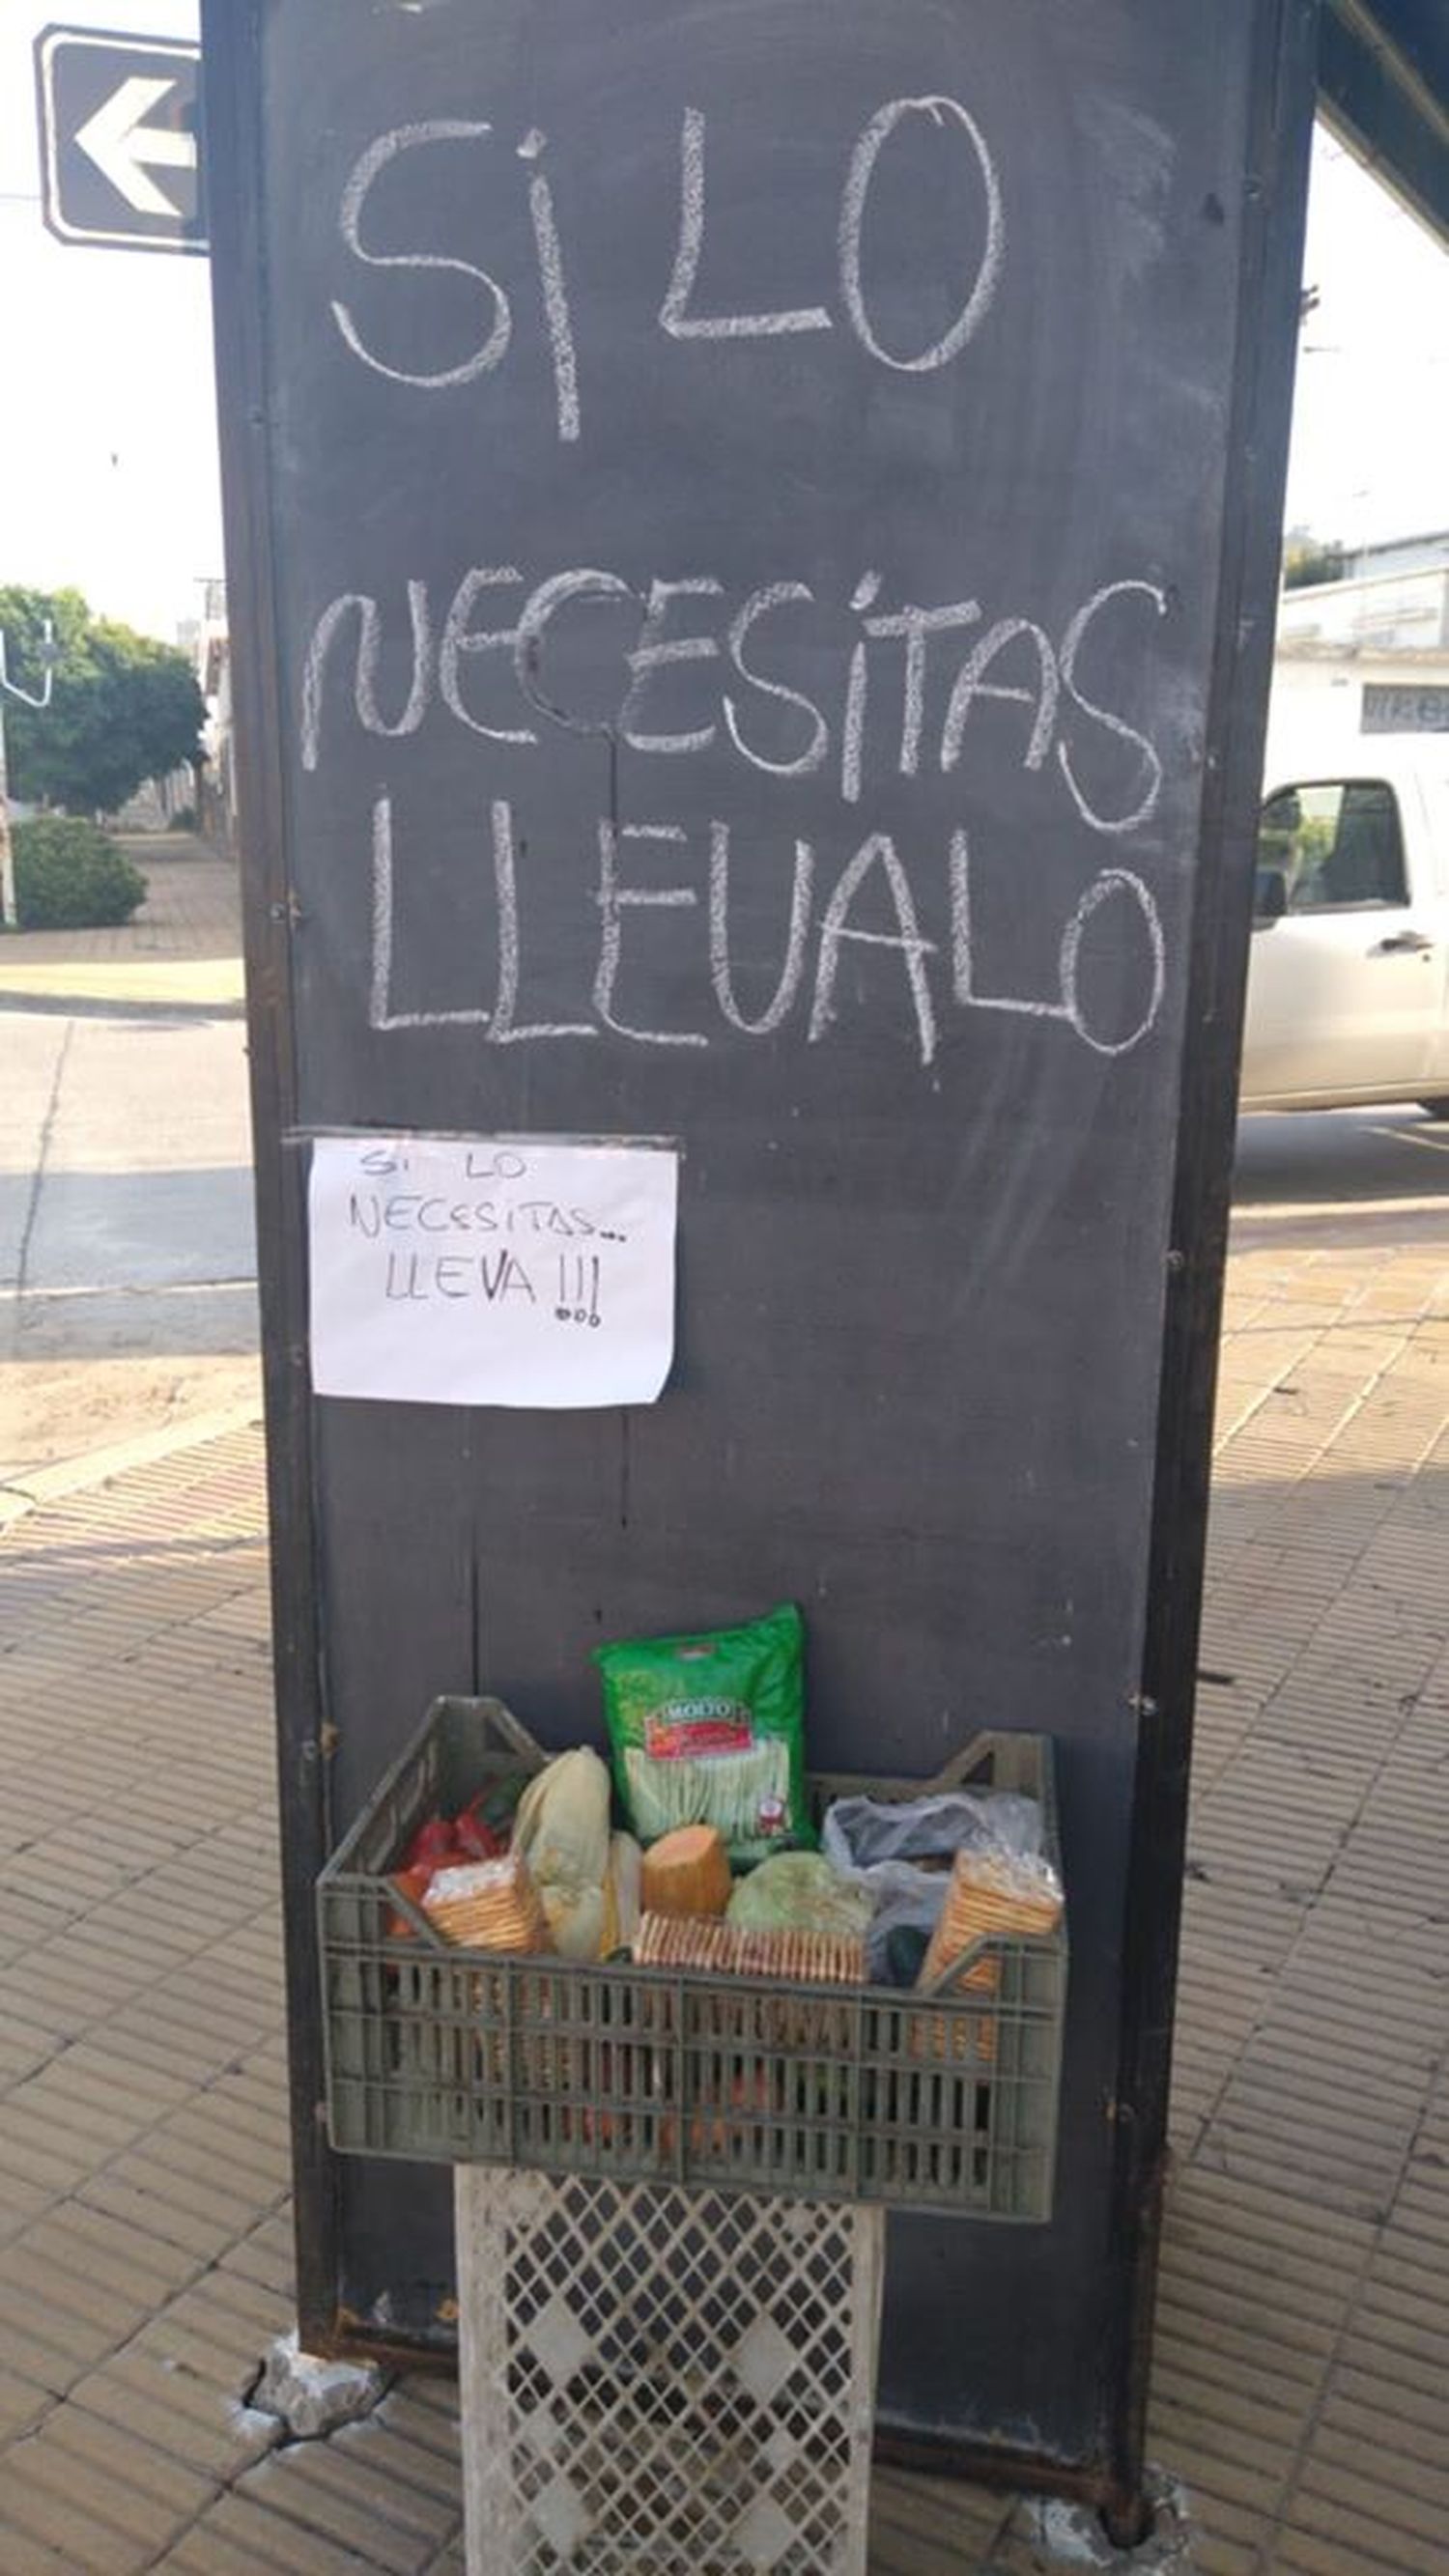 Si LO
NECESiTAS
LLEVALO
Si LO
NECESiTAS...
LLEVA!!!
MOLTO